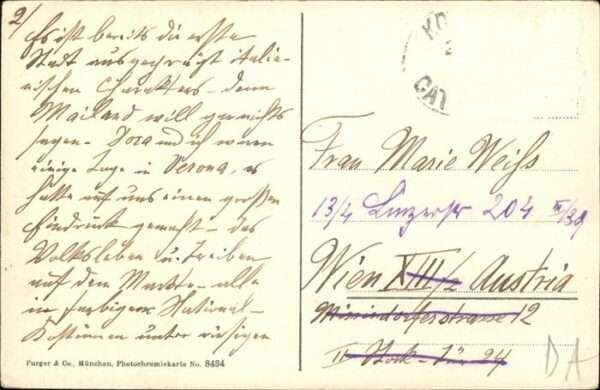 2/
Es ist bereits die erste
Stadt ausgeprägt italie-
nischen Charakters - denn
Mailand will garnichts
sagen. Dora und ich waren
einige Tage in Verona, es
hatte auf uns einen großen
Eindruck gemacht - das
Volksleben u. Treiben
auf dem Markte - alle
in farbigen National-
Kostümen unter riesigen
Furger & Co., München, Photochromiekarte No. 8494
CAT
Frau Marie Weihs
13/4 Linzerstr 204 III/39
Wien XIII/2 Austria
12
II Stock - Tür 24
DA